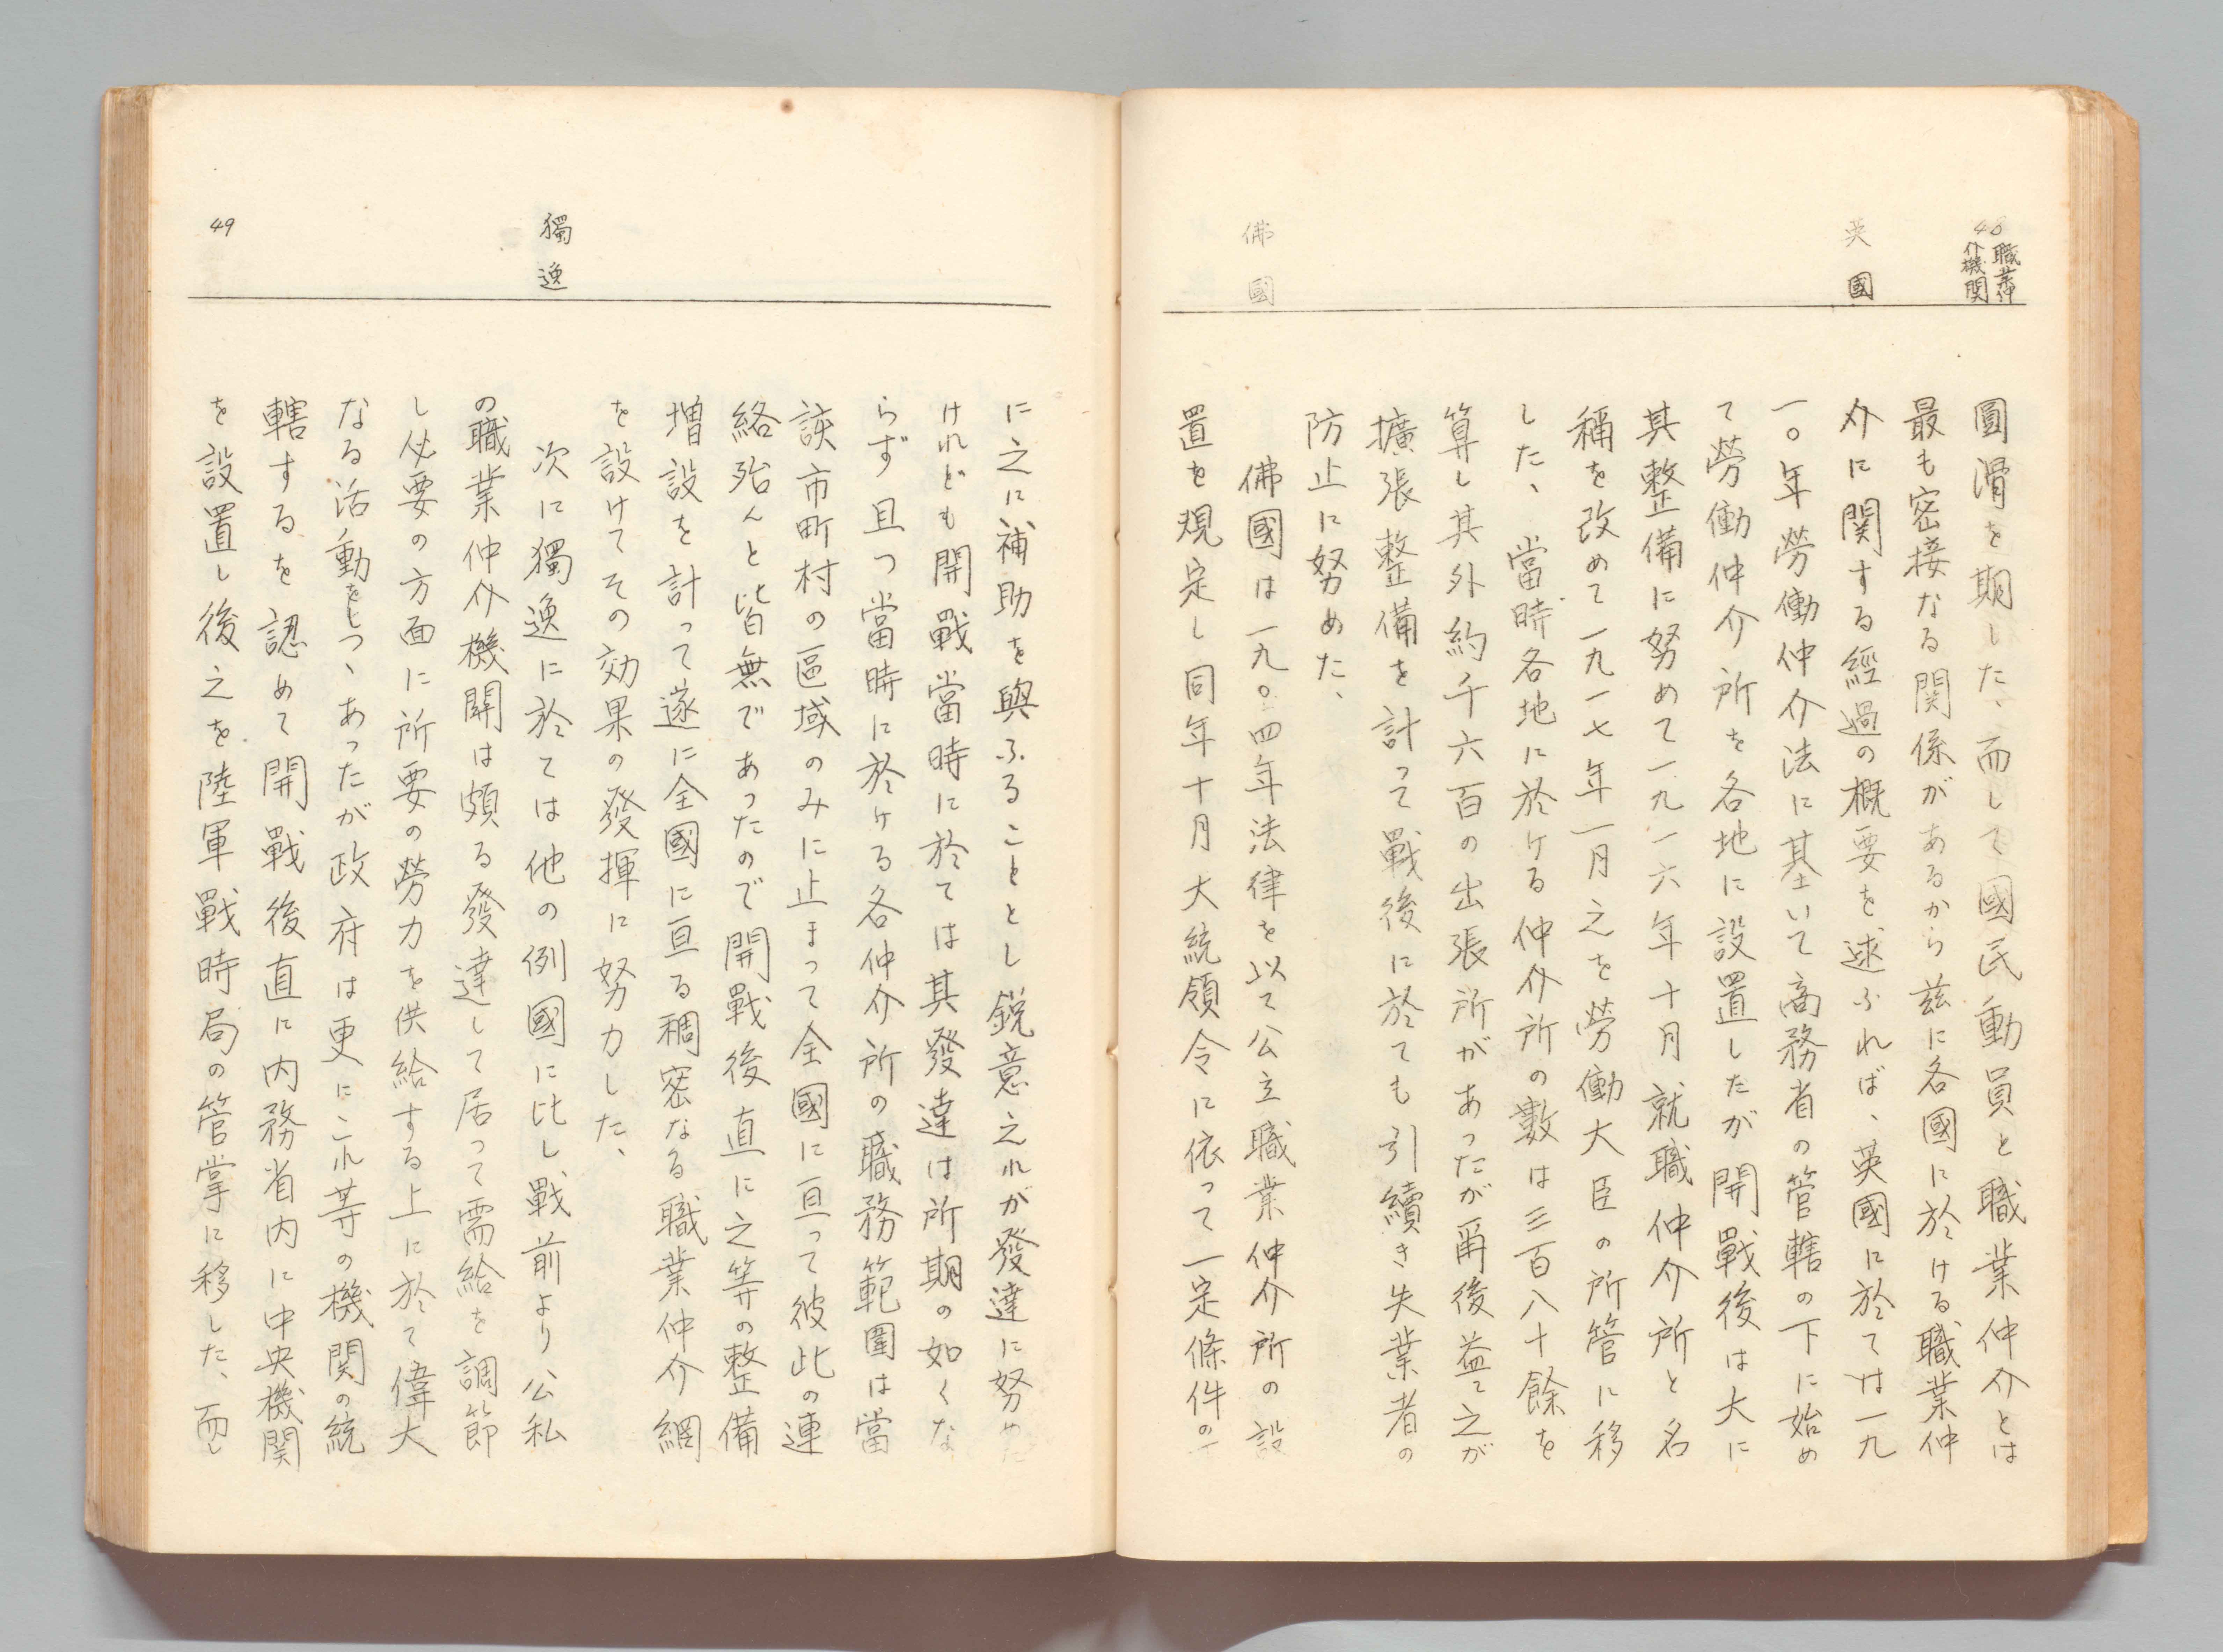 48
職業仲
介機関
英國
佛國
圓滑を期した、而して國民動員と職業仲介とは
最も密接なる関係があるから茲に各國に於ける職業仲
介に関する經過の概要を逑ふれば、英國に於ては一九
一〇年勞働仲介法に基いて商務省の管轄の下に始め
て勞働仲介所を各地に設置したが開戰後は大に
其整備に努めて一九一六年十月就職仲介所と名
稱を改めて一九一七年一月之を勞働大臣の所管に移
した、當時各地に於ける仲介所の數は三百八十餘を
算し其外約千六百の出張所があったが爾後益〻之が
擴張整備を計って戰後に於ても引續き失業者の
防止に努めた、
佛國は一九〇四年法律を以て公立職業仲介所の設
置を規定し同年十月大統領令に依って一定條件の下
獨逸
49
に之に補助を與ふることとし鋭意之れが發達に努めた
けれども開戰當時に於ては其發達は所期の如くな
らず且つ當時に於ける各仲介所の職務範圍は當
該市町村の區域のみに止まって全國に亘って彼此の連
絡殆んと皆無であったので開戰後直に之等の整備
増設を計って遂に全國に亘る稠密なる職業仲介網
を設けてその効果の發揮に努力した、
次に獨逸に於ては他の例國に比し戰前より公私
の職業仲介機關は頗る發達して居って需給を調節
し必要の方面に所要の勞力を供給する上に於て偉大
なる活動をしつゝあったが政府は更にこれ等の機関の統
轄するを認めて開戰後直に内務省内に中央機関
を設置し後之を陸軍戰時局の管掌に移した、而し